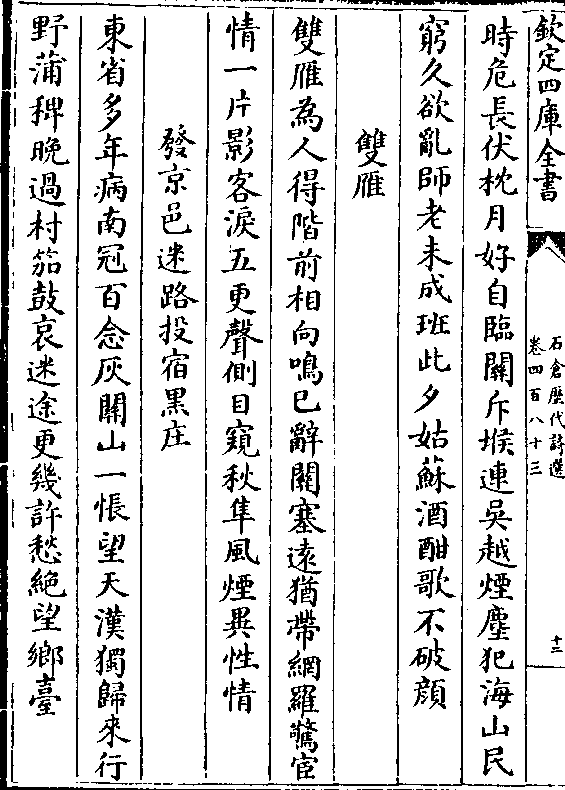 欽定四庫全書
石倉歷代詩選
卷四百八十三
十三
時危長伏枕月好自臨關斥堠連吳越煙塵犯海山民
窮久欲亂師老未成班此夕姑蘇酒酣歌不破顔
雙雁
雙雁為人得階前相向鳴已辭關塞逺猶帶網羅驚宦
情一片影客淚五更聲側目窺秋隼風煙異性情
發京邑迷路投宿黒庄
東省多年病南冠百念灰關山一悵望天漢獨歸來行
野蒲稗晚過村笳鼓哀迷途更幾許愁絶望鄉臺